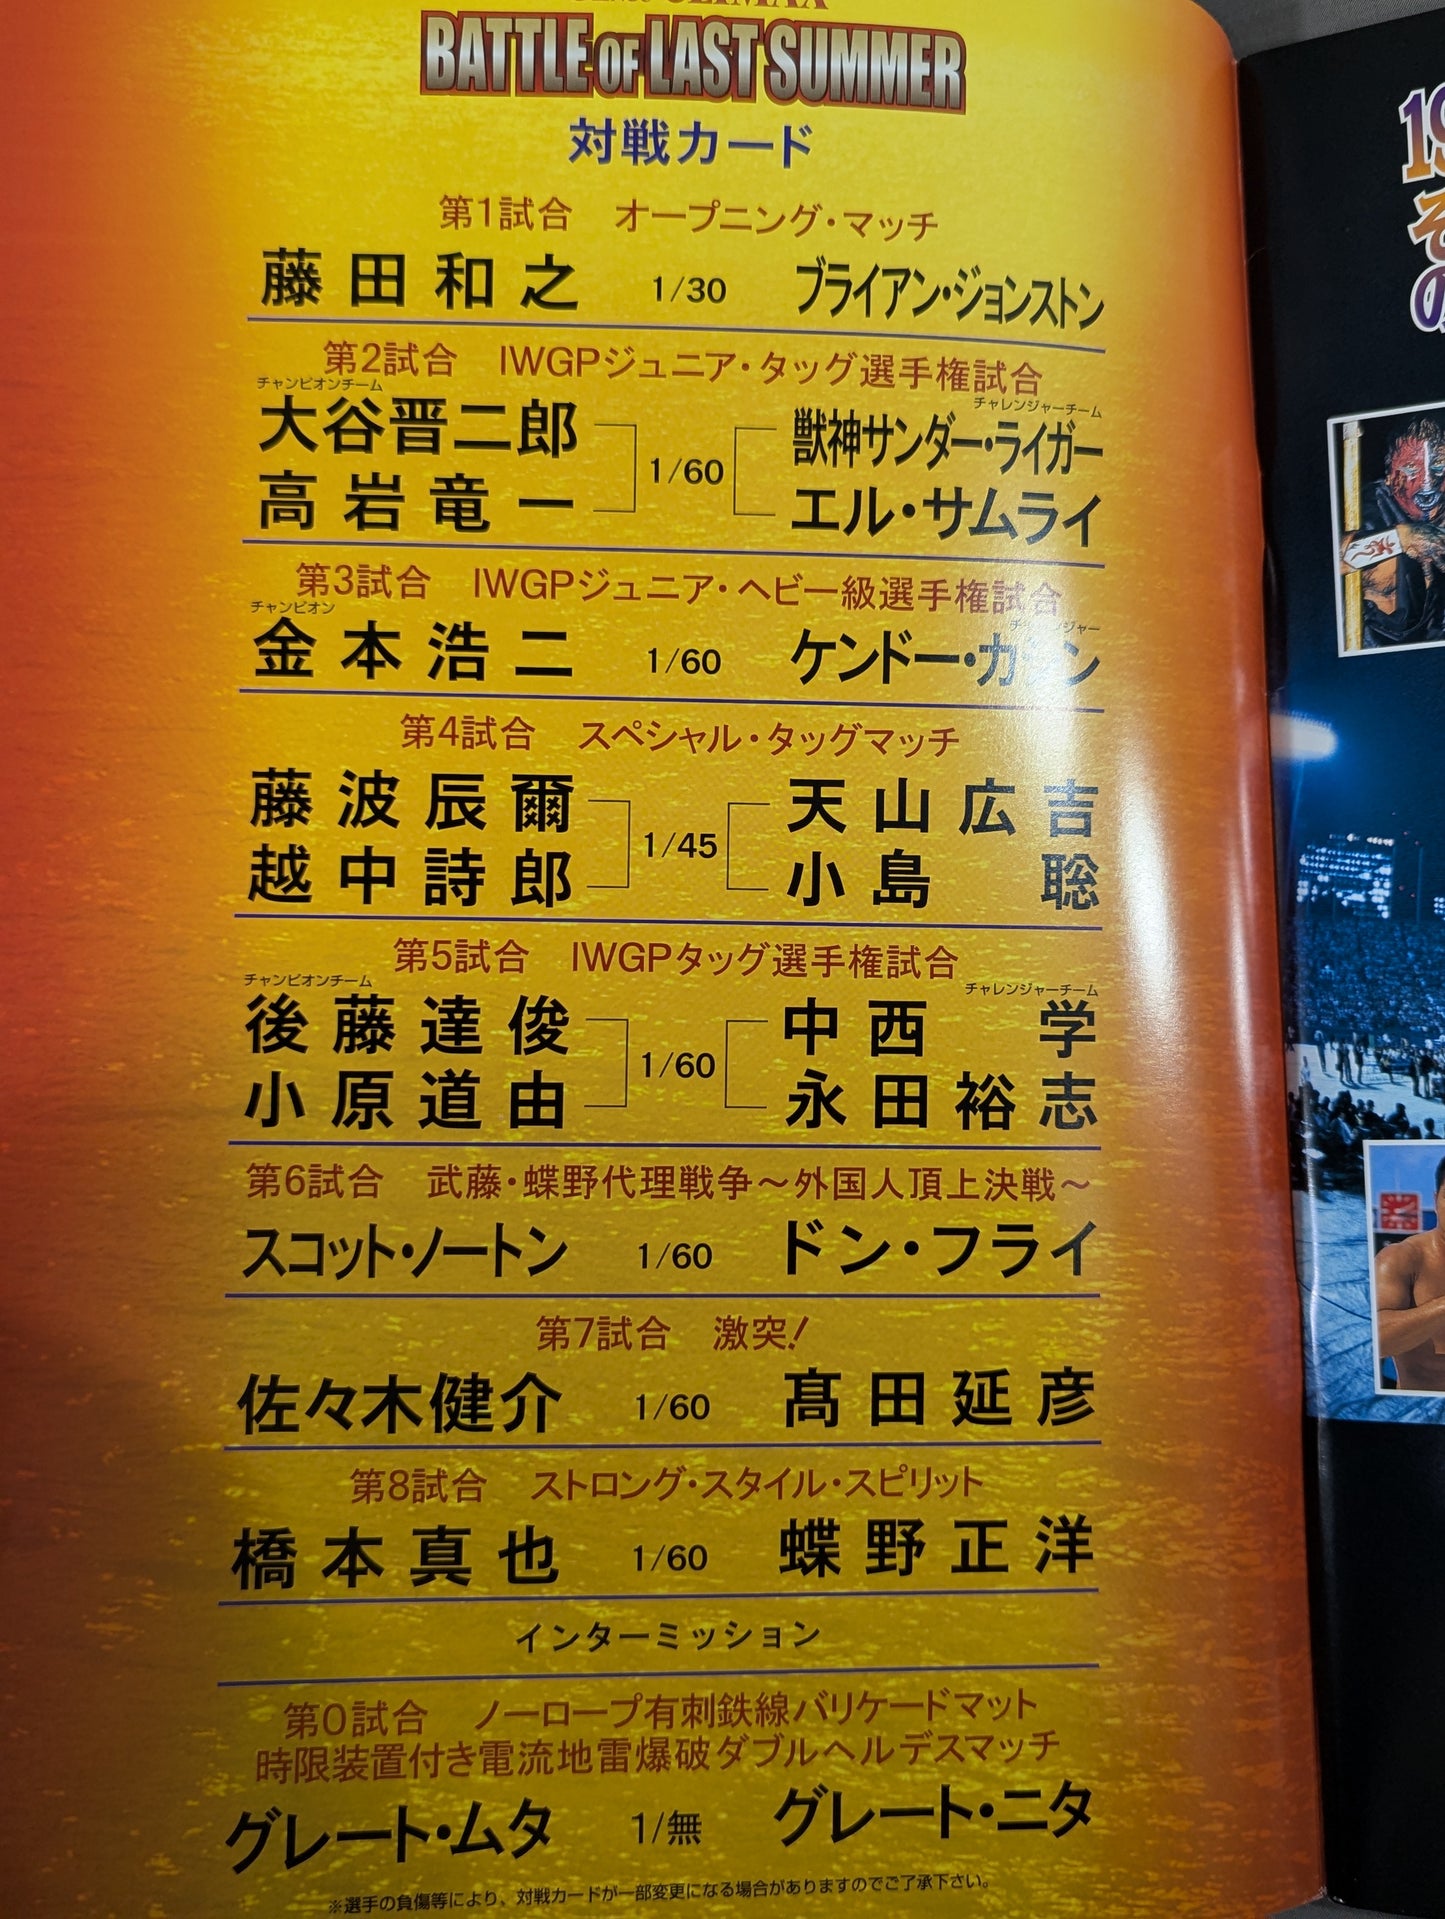 CLIMAX
BATTLE OF LAST SUMMER
対戦カード
第1試合 オープニング・マッチ
藤田和之 1/30 ブライアン・ジョンストン
第2試合 IWGPジュニア・タッグ選手権試合
チャンピオンチーム チャレンジャーチーム
大谷晋二郎 獣神サンダー・ライガー
1/60
高岩竜一 エル・サムライ
第3試合 IWGPジュニア・ヘビー級選手権試合
チャンピオン チャレンジャー
金本浩二 1/60 ケンドー・カシン
第4試合 スペシャル・タッグマッチ
藤波辰爾 天山広吉
1/45
越中詩郎 小島聡
第5試合 IWGPタッグ選手権試合
チャンピオンチーム チャレンジャーチーム
後藤達俊 中西学
1/60
小原道由 永田裕志
第6試合 武藤・蝶野代理戦争〜外国人頂上決戦〜
スコット・ノートン 1/60 ドン・フライ
第7試合 激突!
佐々木健介 1/60 髙田延彦
第8試合 ストロング・スタイル・スピリット
橋本真也 1/60 蝶野正洋
インターミッション
第0試合 ノーロープ有刺鉄線バリケードマット
時限装置付き電流地雷爆破ダブルヘルデスマッチ
グレート・ムタ 1/無 グレート・ニタ
※選手の負傷等により、対戦カードが一部変更になる場合がありますのでご了承下さい。
19
そ
の